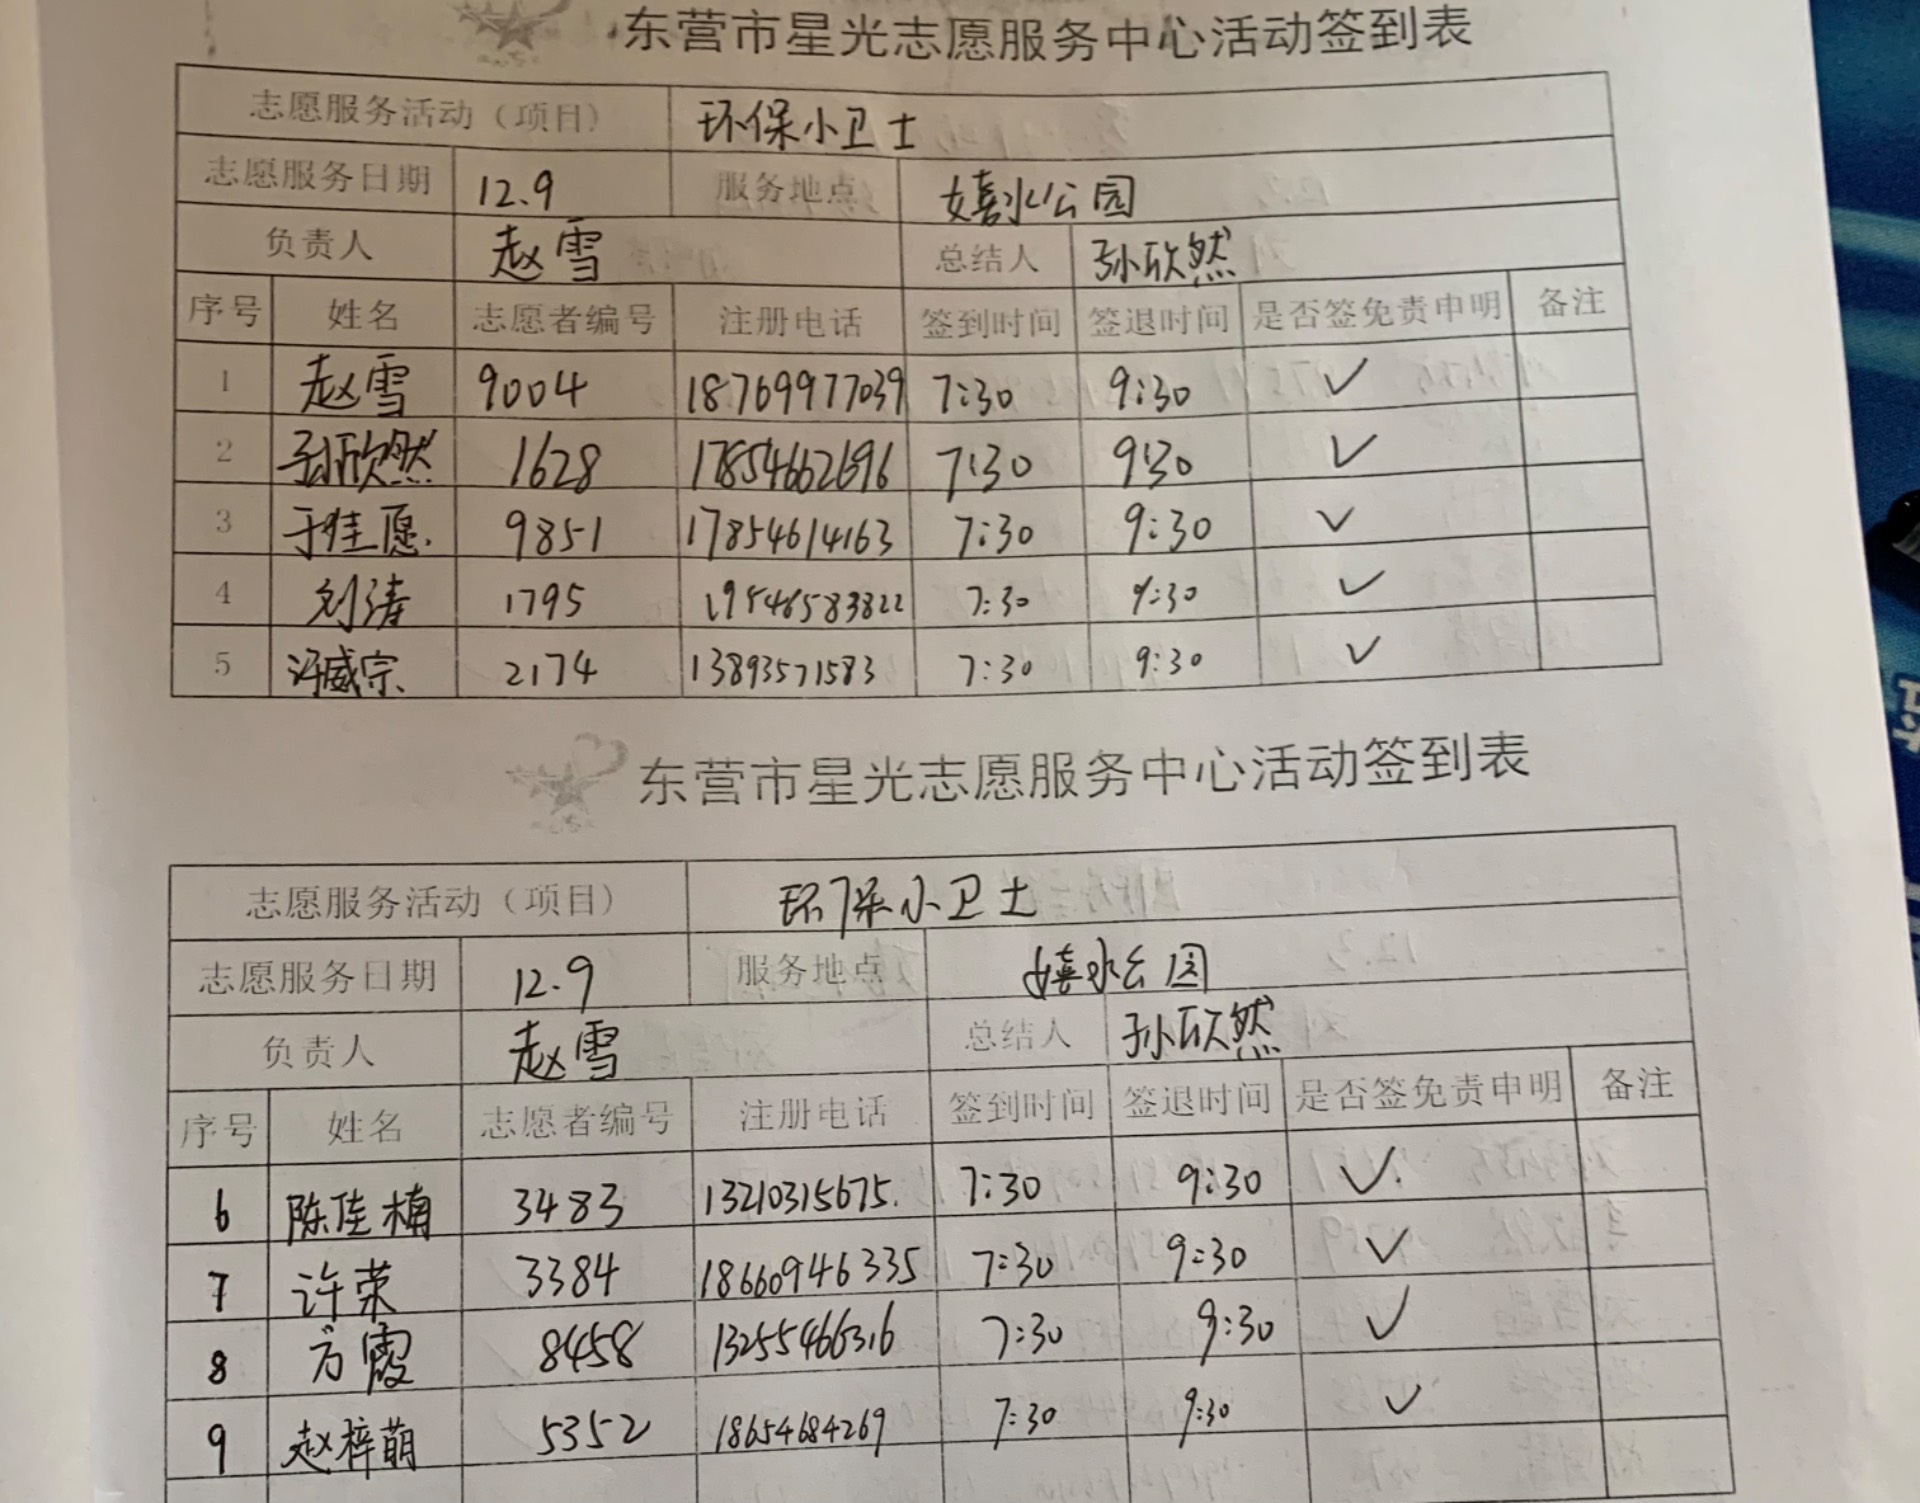 东营市星光志愿服务中心活动签到表
志愿服务活动（项目） 环保小卫士
志愿服务日期 12.9 服务地点 嬉水公园
负责人 赵雪 总结人 孙欣然
序号 姓名 志愿者编号 注册电话 签到时间 签退时间 是否签免责申明 备注
1 赵雪 9004 18769977039 7:30 9:30 ✓
2 孙欣然 1628 17854662696 7:30 9:30 ✓
3 于佳愿 9851 17854614163 7:30 9:30 ✓
4 刘涛 1795 19546583822 7:30 9:30 ✓
5 冯威宗 2174 13893571583 7:30 9:30 ✓
东营市星光志愿服务中心活动签到表
志愿服务活动（项目） 环保小卫士
志愿服务日期 12.9 服务地点 嬉水公园
负责人 赵雪 总结人 孙欣然
序号 姓名 志愿者编号 注册电话 签到时间 签退时间 是否签免责申明 备注
6 陈佳楠 3483 13210315675. 7:30 9:30 ✓
7 许荣 3384 18660946335 7:30 9:30 ✓
8 方霞 8458 13255466316 7:30 9:30 ✓
9 赵梓萌 5352 18654684269 7:30 9:30 ✓